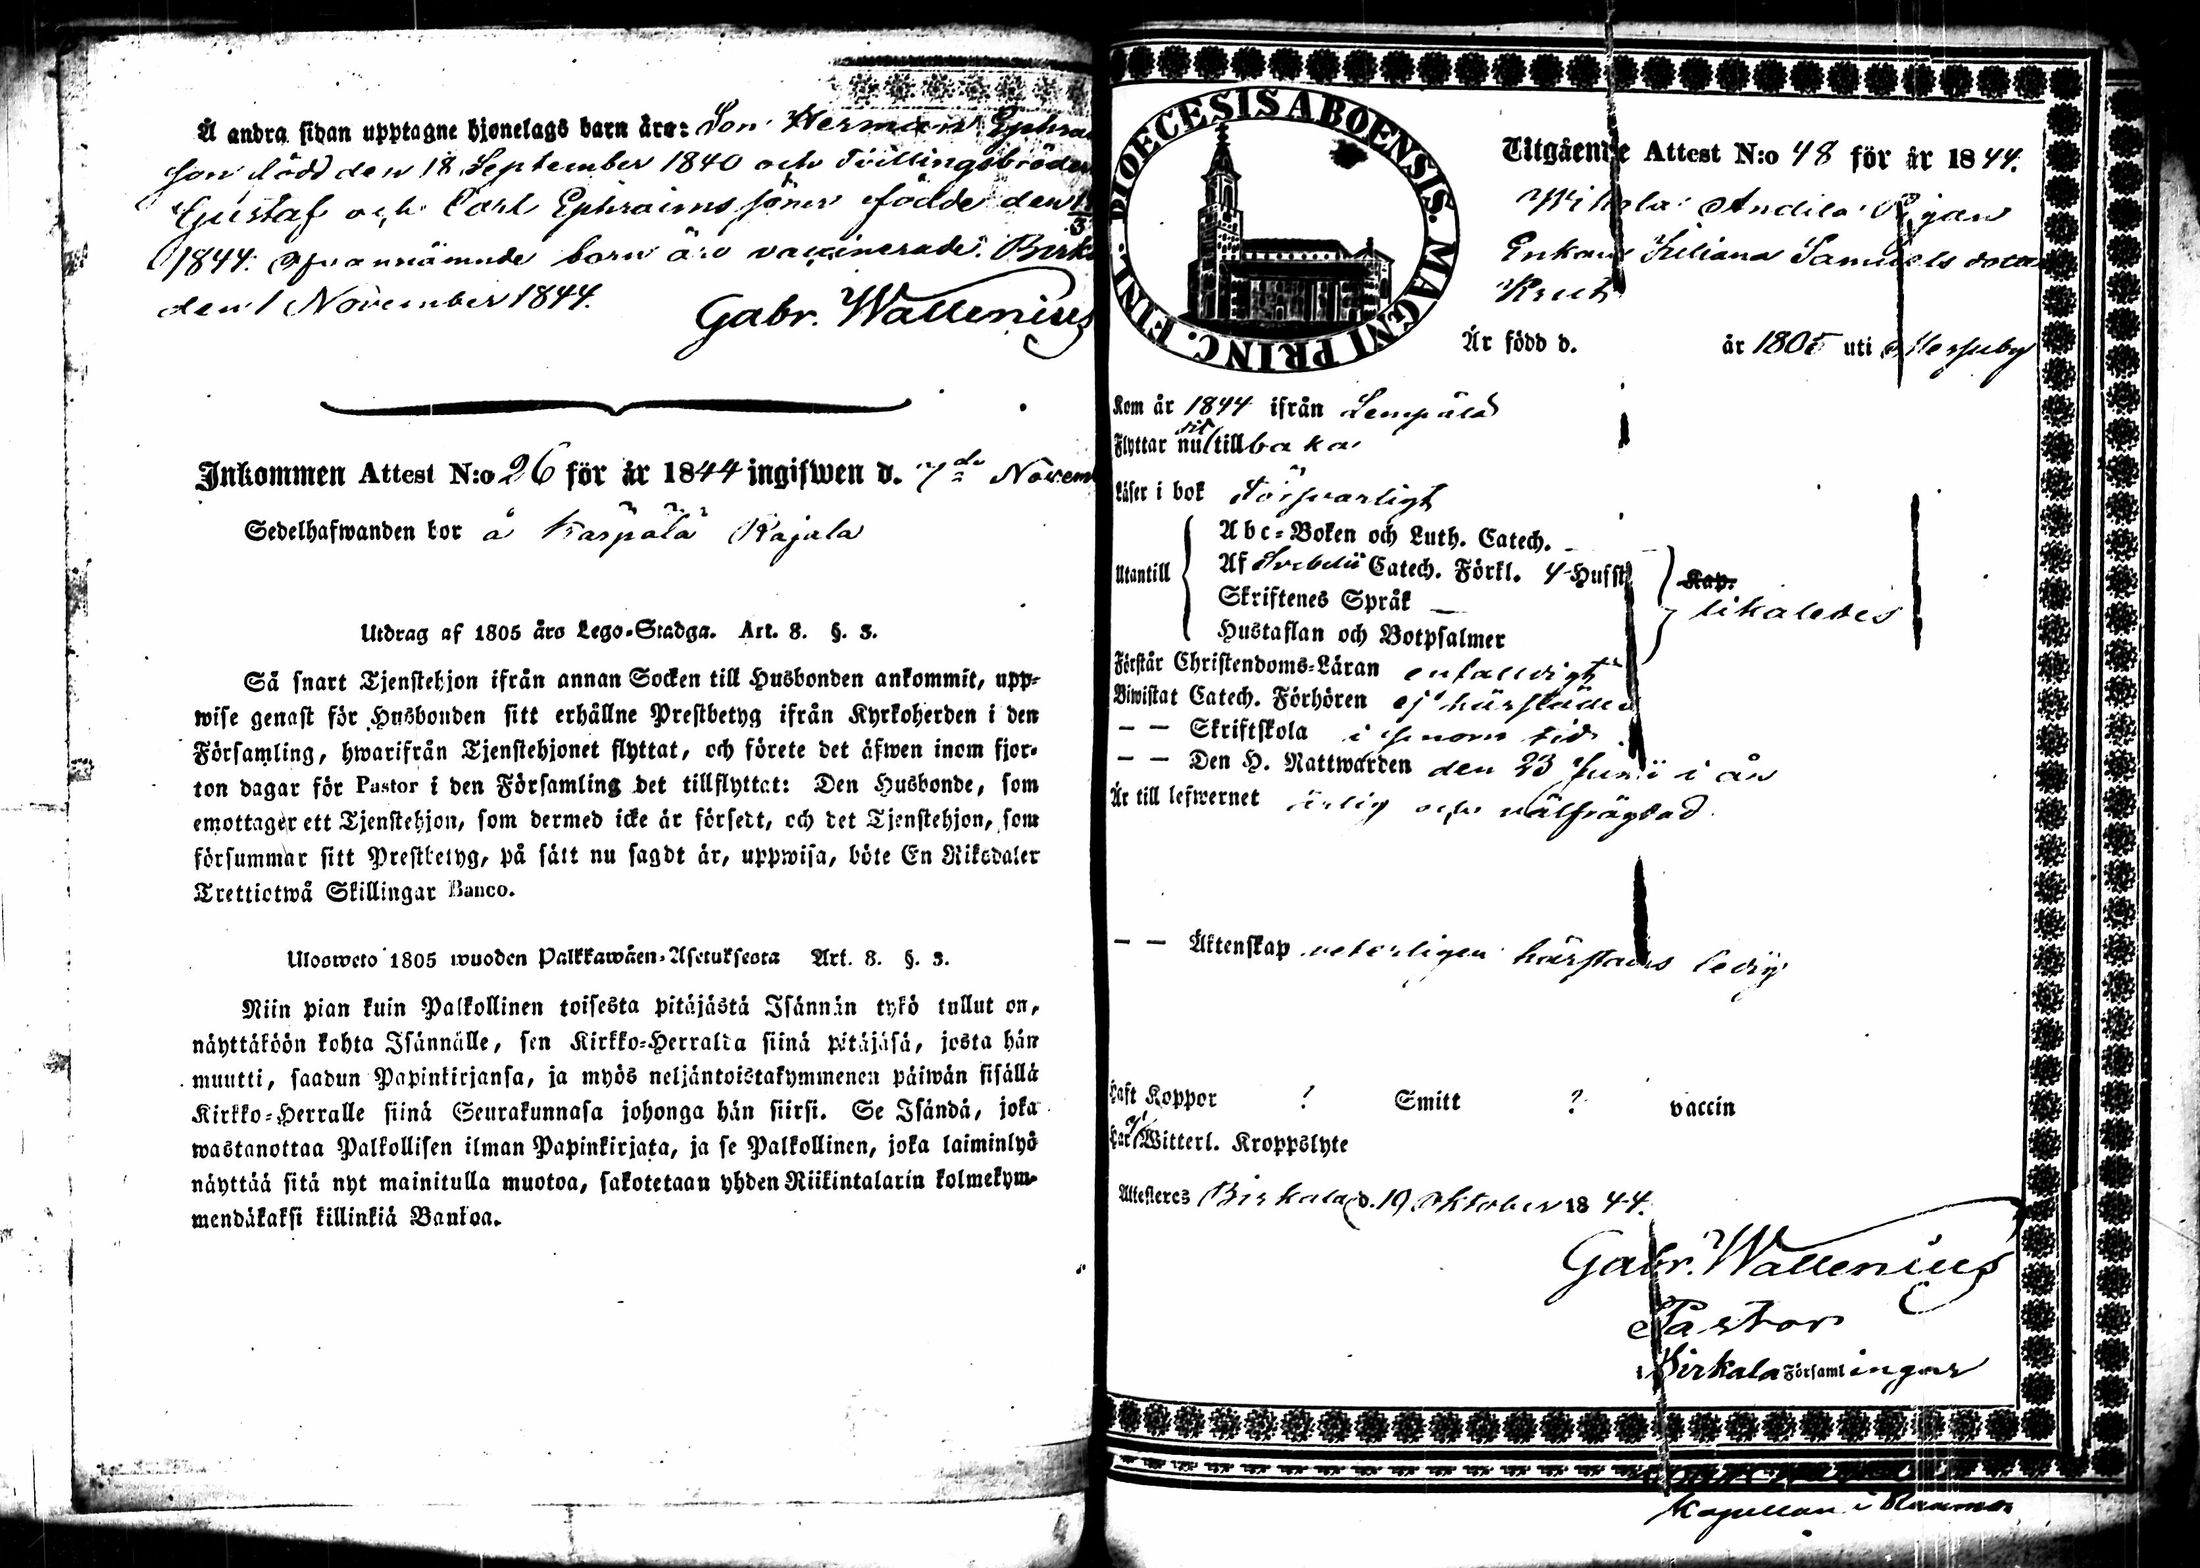 Å andra sidan upptagne hjonelags barn äro: Son Herman Ephra
son född den 18 September 1840 och Tvillingsbröder
Gustaf och Carl Ephraims söner födde den
1844. ofvannämnde barn äro vaccinerade. Birk
den 1 November 1844.
Gabr. Wallenius
Inkommen Attest N:o 26 för år 1844 ingifwen d. 7de Novem
Sedelhafwanden bor å Kaspälä Rajala
Utdrag af 1805 års Lego-Stadga. Art. 8. §. 3.
Så snart Tjenstehjon ifrån annan Socken till Husbonden ankommit, upp-
wise genast för Husbonden sitt erhållne Prestbetyg ifrån Kyrkoherden i den
Församling, hwarifrån Tjenstehjonet flyttat, och förete det äfwen inom fjor-
ton dagar för Pastor i den Församling det tillflyttat: Den Husbonde, som
emottager ett Tjenstehjon, som dermed icke är försedt, och det Tjenstehjon, som
försummar sitt Prestbetyg, på sätt nu sagdt är, uppwisa, böte En Riksdaler
Trettiotwå Skillingar Banco.
Ulosweto 1805 wuoden Palkkawäen-Asetuksesta Art. 8. §. 3.
Niin pian kuin Palkollinen toisesta pitäjästä Isännän tykö tullut on,
näyttäköön kohta Isännälle, sen Kirkko-Herralta siinä pitäjäsä, josta hän
muutti, saadun Papinkirjansa, ja myös neljäntoistakymmenen päiwän sisällä
Kirkko-Herralle siinä Seurakunnasa johonga hän siirsi. Se Isändä, joka
wastanottaa Palkollisen ilman Papinkirjata, ja se Palkollinen, joka laiminlyö
näyttää sitä nyt mainitulla muotoa, sakotetaan yhden Riikintalarin kolmekym-
mendäkaksi killinkiä Bankoa.
DIOECESIS ABOENSIS. MAGNI PRINC. FINL.
Utgående Attest N:o 48 för år 1844.
Pigan
Enkan Liliana Samuels dotter
Krut
Är född d. år 1805 uti Messuby
Kom år 1844 ifrån Lempälä
dit
Flyttar nu tillbaka
Läser i bok Försvarligt
Utantill
Abc-Boken och Luth. Catech.
Af Svebelii Catech. Förkl. 4 Hufst
Skriftenes Språk
Hustaflan och Botpsalmer
Kap.
likaledes
Förstår Christendoms-Läran enfalldigt
Biwistat Catech. Förhören ej härstädes
— — Skriftskola i sinom tid
— — Den H. Nattwarden den 23 Junii i år
Är till lefwernet ärlig och välfrägdad
— — Äktenskap veterligen härstädes ledig
Haft Koppor ? Smitt ? vaccin
Har ej Witterl. Kroppslyte
Attesteres Birkala d. 19 Oktober 1844.
Gabr. Wallenius
Pastor
i Birkala Församlingar
Kapellan i